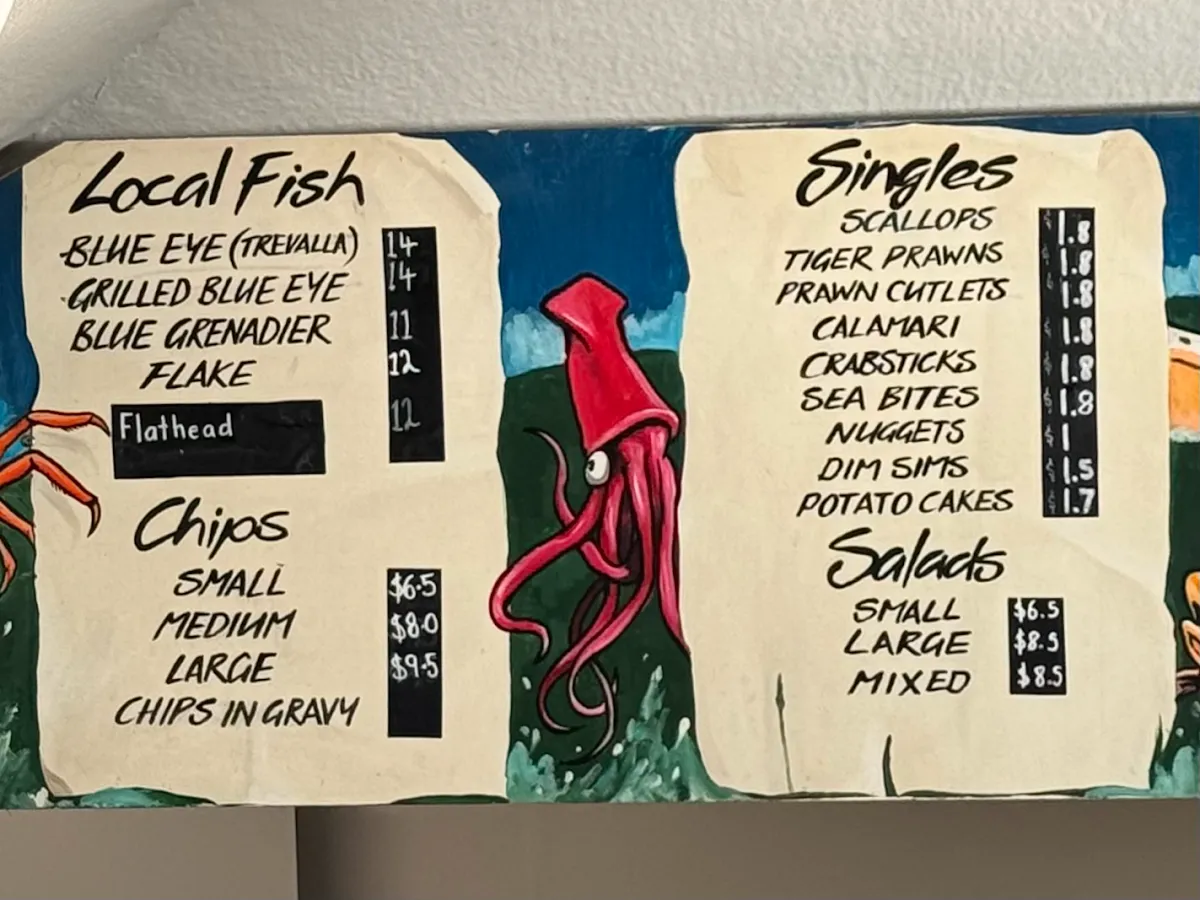 Local Fish
BLUE EYE (TREVALLA) 14
GRILLED BLUE EYE 14
BLUE GRENADIER 11
FLAKE 12
Flathead 12
Chips
SMALL $6.5
MEDIUM $8.0
LARGE $9.5
CHIPS IN GRAVY
Singles
SCALLOPS $1.8
TIGER PRAWNS $1.8
PRAWN CUTLETS $1.8
CALAMARI $1.8
CRABSTICKS $1.8
SEA BITES $1.8
NUGGETS $1
DIM SIMS $1.5
POTATO CAKES $1.7
Salads
SMALL $6.5
LARGE $8.5
MIXED $8.5